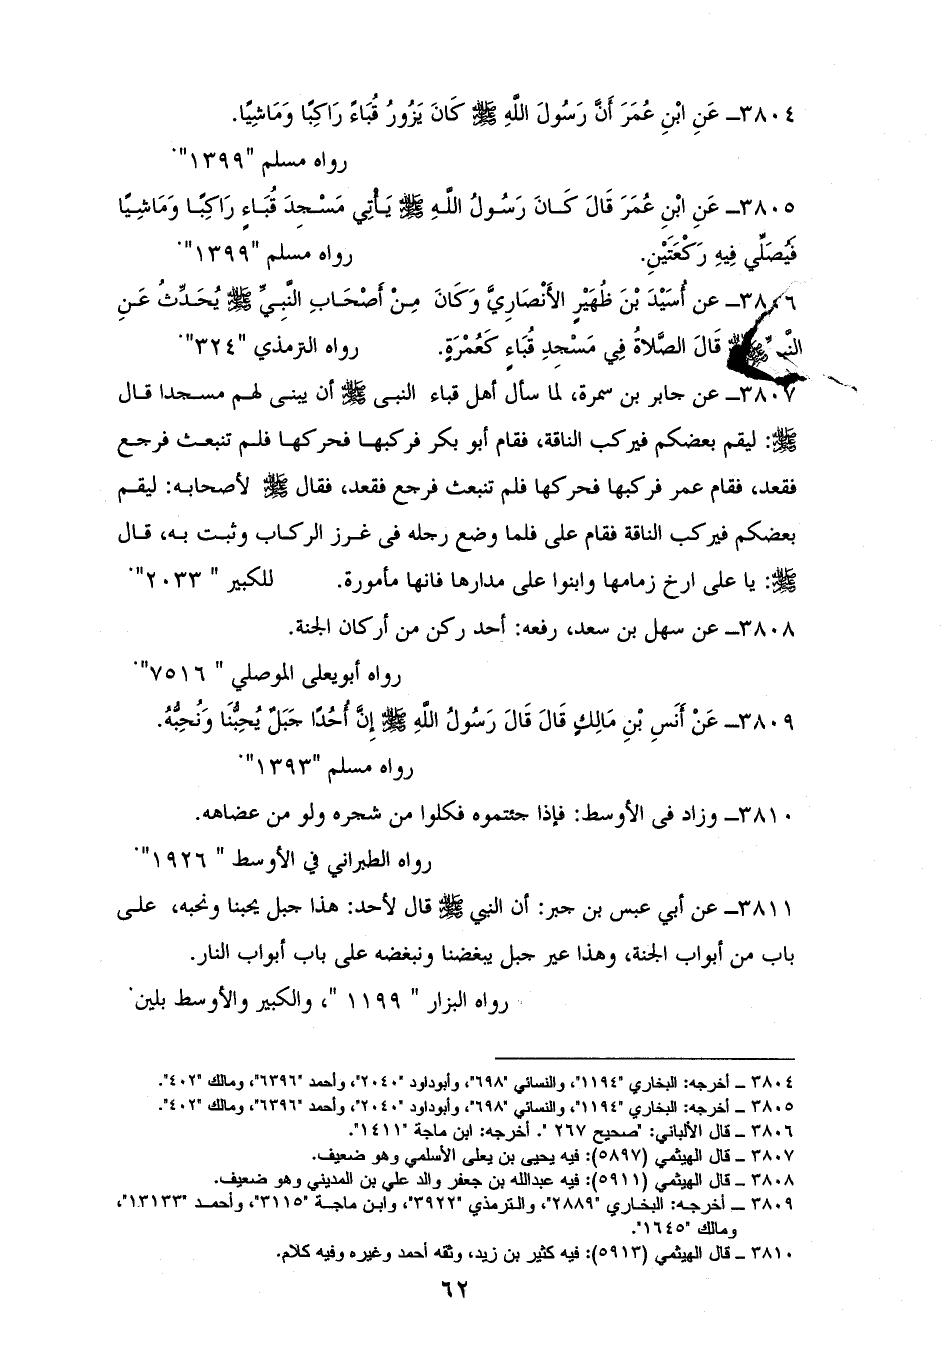 ٣٨٠٤ــ عَنِ ابْنِ عُمَرَ أَنَّ رَسُولَ اللَّهِ ﷺ كَانَ يَزُورُ قُبَاءً رَاكِبًا وَمَاشِيًا.
رواه مسلم "١٣٩٩".
٣٨٠٥ــ عَنِ ابْنِ عُمَرَ قَالَ كَانَ رَسُولُ اللَّهِ ﷺ يَأْتِي مَسْجِدَ قُبَاءٍ رَاكِبًا وَمَاشِيًا
فَيُصَلِّي فِيهِ رَكْعَتَيْنِ. رواه مسلم "١٣٩٩".
٣٨٠٦ــ عن أُسَيْدَ بْنَ ظُهَيْرٍ الأَنْصَارِيَّ وَكَانَ مِنْ أَصْحَابِ النَّبِيِّ ﷺ يُحَدِّثُ عَنِ
النَّبِيِّ ﷺ قَالَ الصَّلَاةُ فِي مَسْجِدِ قُبَاءٍ كَعُمْرَةٍ. رواه الترمذي "٣٢٤".
٣٨٠٧ــ عن جابر بن سمرة، لما سأل أهل قباء النبى ﷺ أن يبنى لهم مسجدا قال
ﷺ: ليقم بعضكم فيركب الناقة، فقام أبو بكر فركبها فحركها فلم تنبعث فرجع
فقعد، فقام عمر فركبها فحركها فلم تنبعث فرجع فقعد، فقال ﷺ لأصحابه: ليقم
بعضكم فيركب الناقة فقام على فلما وضع رجله فى غرز الركاب وثبت به، قال
ﷺ: يا على ارخ زمامها وابنوا على مدارها فانها مأمورة. للكبير " ٢٠٣٣".
٣٨٠٨ــ عن سهل بن سعد، رفعه: أحد ركن من أركان الجنة.
رواه أبويعلى الموصلي " ٧٥١٦".
٣٨٠٩ــ عَنْ أَنَسِ بْنِ مَالِكٍ قَالَ قَالَ رَسُولُ اللَّهِ ﷺ إِنَّ أُحُدًا جَبَلٌ يُحِبُّنَا وَنُحِبُّهُ.
رواه مسلم "١٣٩٣".
٣٨١٠ــ وزاد فى الأوسط: فإذا جئتموه فكلوا من شجره ولو من عضاهه.
رواه الطبراني في الأوسط " ١٩٢٦".
٣٨١١ــ عن أبي عبس بن جبر: أن النبي ﷺ قال لأحد: هذا جبل يحبنا ونحبه، على
باب من أبواب الجنة، وهذا عير جبل يبغضنا ونبغضه على باب أبواب النار.
رواه البزار " ١١٩٩ "، والكبير والأوسط بلين.
٣٨٠٤ ــ أخرجه: البخاري "١١٩٤"، والنسائي "٦٩٨"، وأبوداود "٢٠٤٠"، وأحمد "٦٣٩٦"، ومالك "٤٠٢".
٣٨٠٥ ــ أخرجه: البخاري "١١٩٤"، والنسائي "٦٩٨"، وأبوداود "٢٠٤٠"، وأحمد "٦٣٩٦"، ومالك "٤٠٢".
٣٨٠٦ ــ قال الألباني: "صحيح ٢٦٧ ". أخرجه: ابن ماجة "١٤١١".
٣٨٠٧ ــ قال الهيثمي (٥٨٩٧): فيه يحيى بن يعلى الأسلمي وهو ضعيف.
٣٨٠٨ ــ قال الهيثمي (٥٩١١): فيه عبدالله بن جعفر والد علي بن المديني وهو ضعيف.
٣٨٠٩ ــ أخرجه: البخاري "٢٨٨٩"، والترمذي "٣٩٢٢"، وابن ماجة "٣١١٥"، وأحمد "١٣١٣٣"،
ومالك "١٦٤٥".
٣٨١٠ ــ قال الهيثمي (٥٩١٣): فيه كثير بن زيد، وثقه أحمد وغيره وفيه كلام.
٦٢